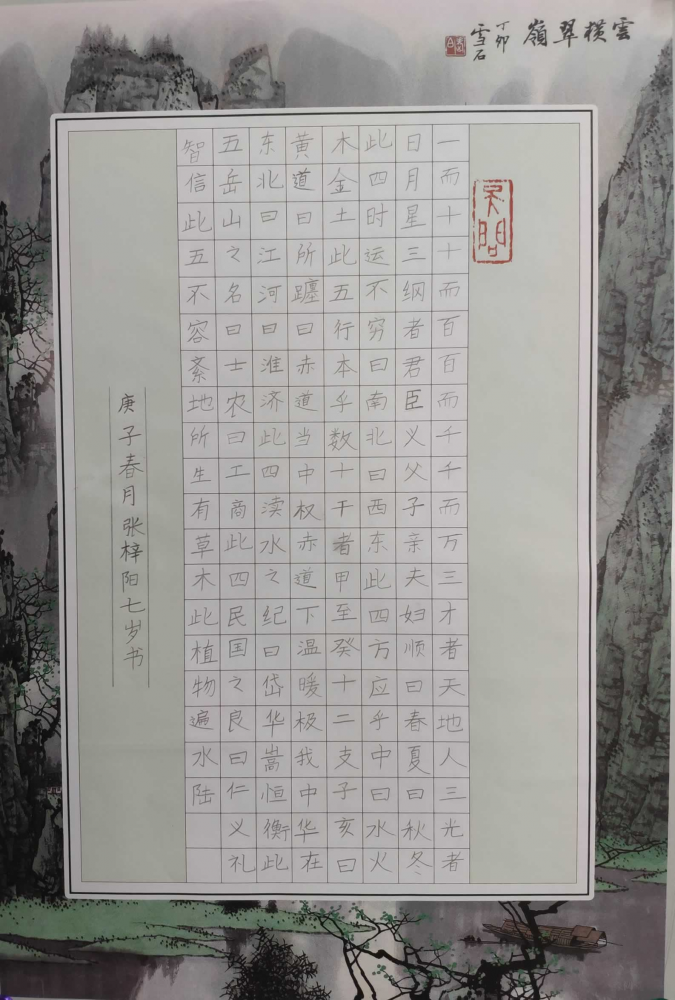 雲橫翠嶺
丁卯
雪石
一而十十而百百而千千而万三才者天地人三光者
日月星三纲者君臣义父子亲夫妇顺曰春夏曰秋冬
此四时运不穷曰南北曰西东此四方应乎中曰水火
木金土此五行本乎数十干者甲至癸十二支子亥曰
黄道曰所躔曰赤道当中权赤道下温暖极我中华在
东北曰江河曰淮济此四渎水之纪曰岱华嵩恒衡此
五岳山之名曰士农曰工商此四民国之良曰仁义礼
智信此五不容紊地所生有草木此植物遍水陆
庚子春月张梓阳七岁书